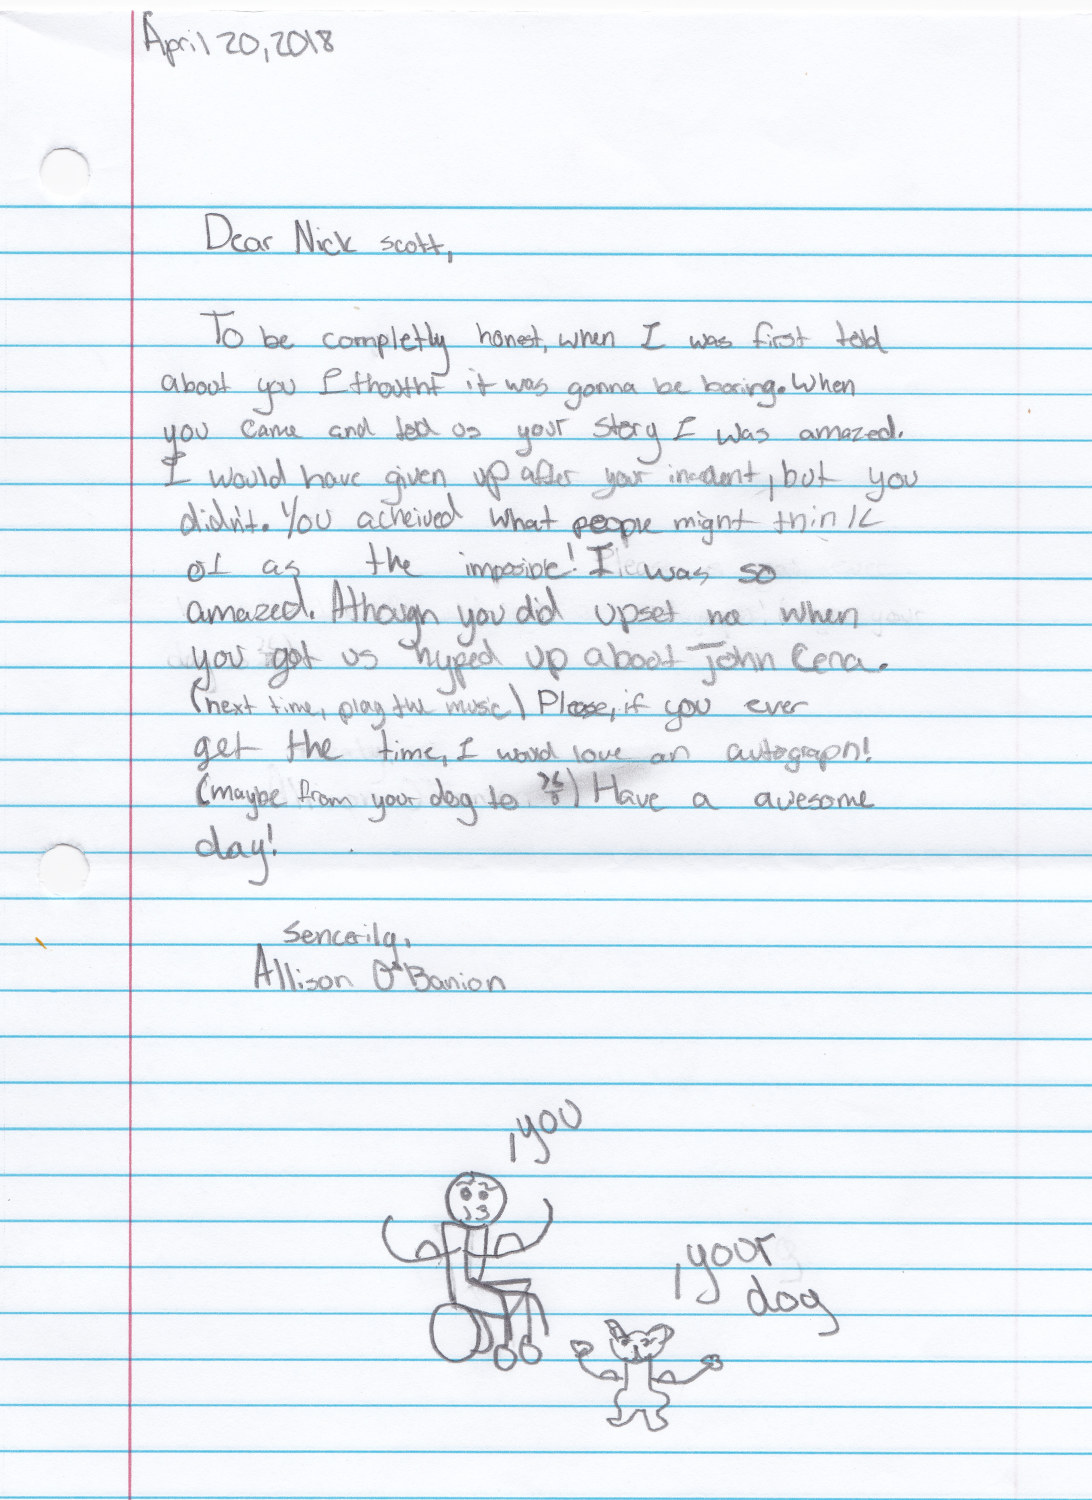 April 20, 2018
Dear Nick scott,
To be completly honest, when I was first told
about you I thoutht it was gonna be boring. When
you came and told us your story I was amazed.
I would have given up after your incedent, but you
didn't. You acheived what people might think
of as the imposible! I was so
amazed. Although you did upset me when
you got us hyped up about John Cena.
(next time, play the music) Please, if you ever
get the time, I woud love an autograph!
(maybe from your dog to) Have a awesome
day!
Sencerily,
Allison O'Banion
you
your
dog